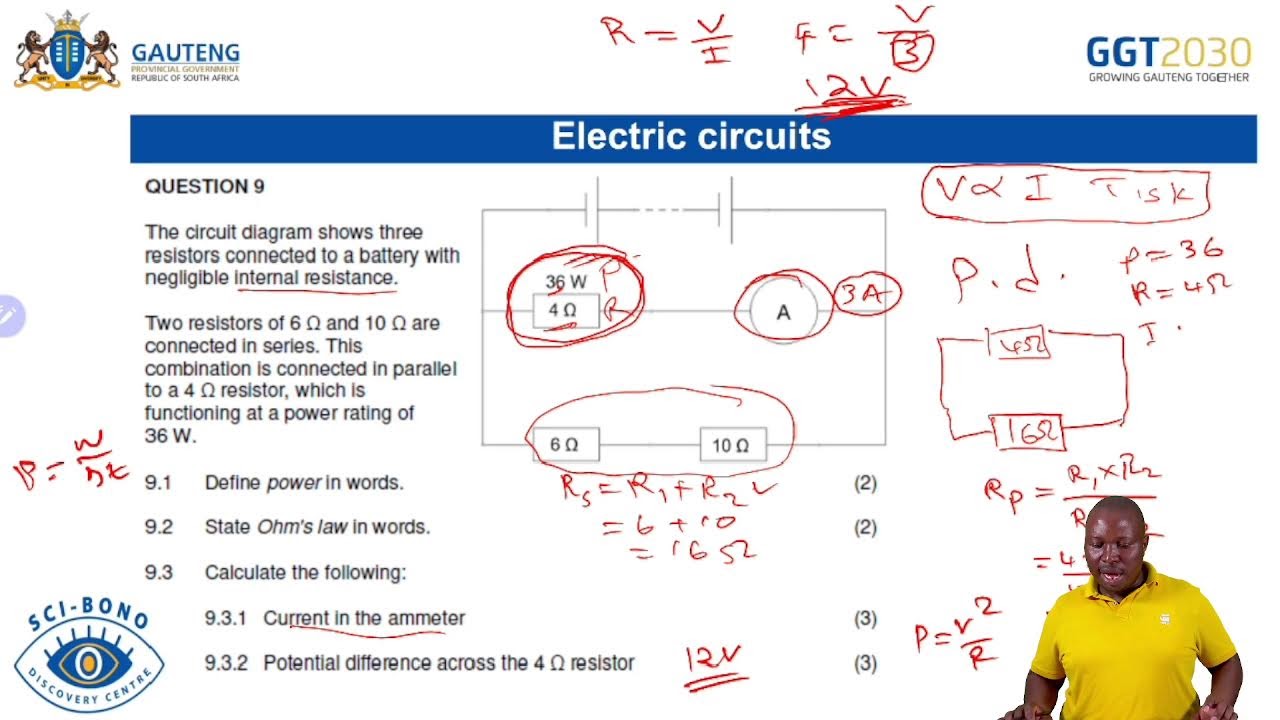 GAUTENG
PROVINCIAL GOVERNMENT
REPUBLIC OF SOUTH AFRICA
R = V/I
4 = V/3
12V
GGT2030
GROWING GAUTENG TOGETHER
Electric circuits
QUESTION 9
The circuit diagram shows three
resistors connected to a battery with
negligible internal resistance.
Two resistors of 6 Ω and 10 Ω are
connected in series. This
combination is connected in parallel
to a 4 Ω resistor, which is
functioning at a power rating of
36 W.
P = W/Δt
36 W
P
4 Ω
R
A
3A
6 Ω
10 Ω
V ∝ I T is k
P.d.
P = 36
R = 4Ω
I
4Ω
16Ω
9.1 Define power in words. (2)
9.2 State Ohm's law in words. (2)
9.3 Calculate the following:
9.3.1 Current in the ammeter (3)
9.3.2 Potential difference across the 4 Ω resistor (3)
Rs = R1 + R2
= 6 + 10
= 16 Ω
12V
Rp = R1 × R2
P = V²/R
SCI-BONO
DISCOVERY CENTRE